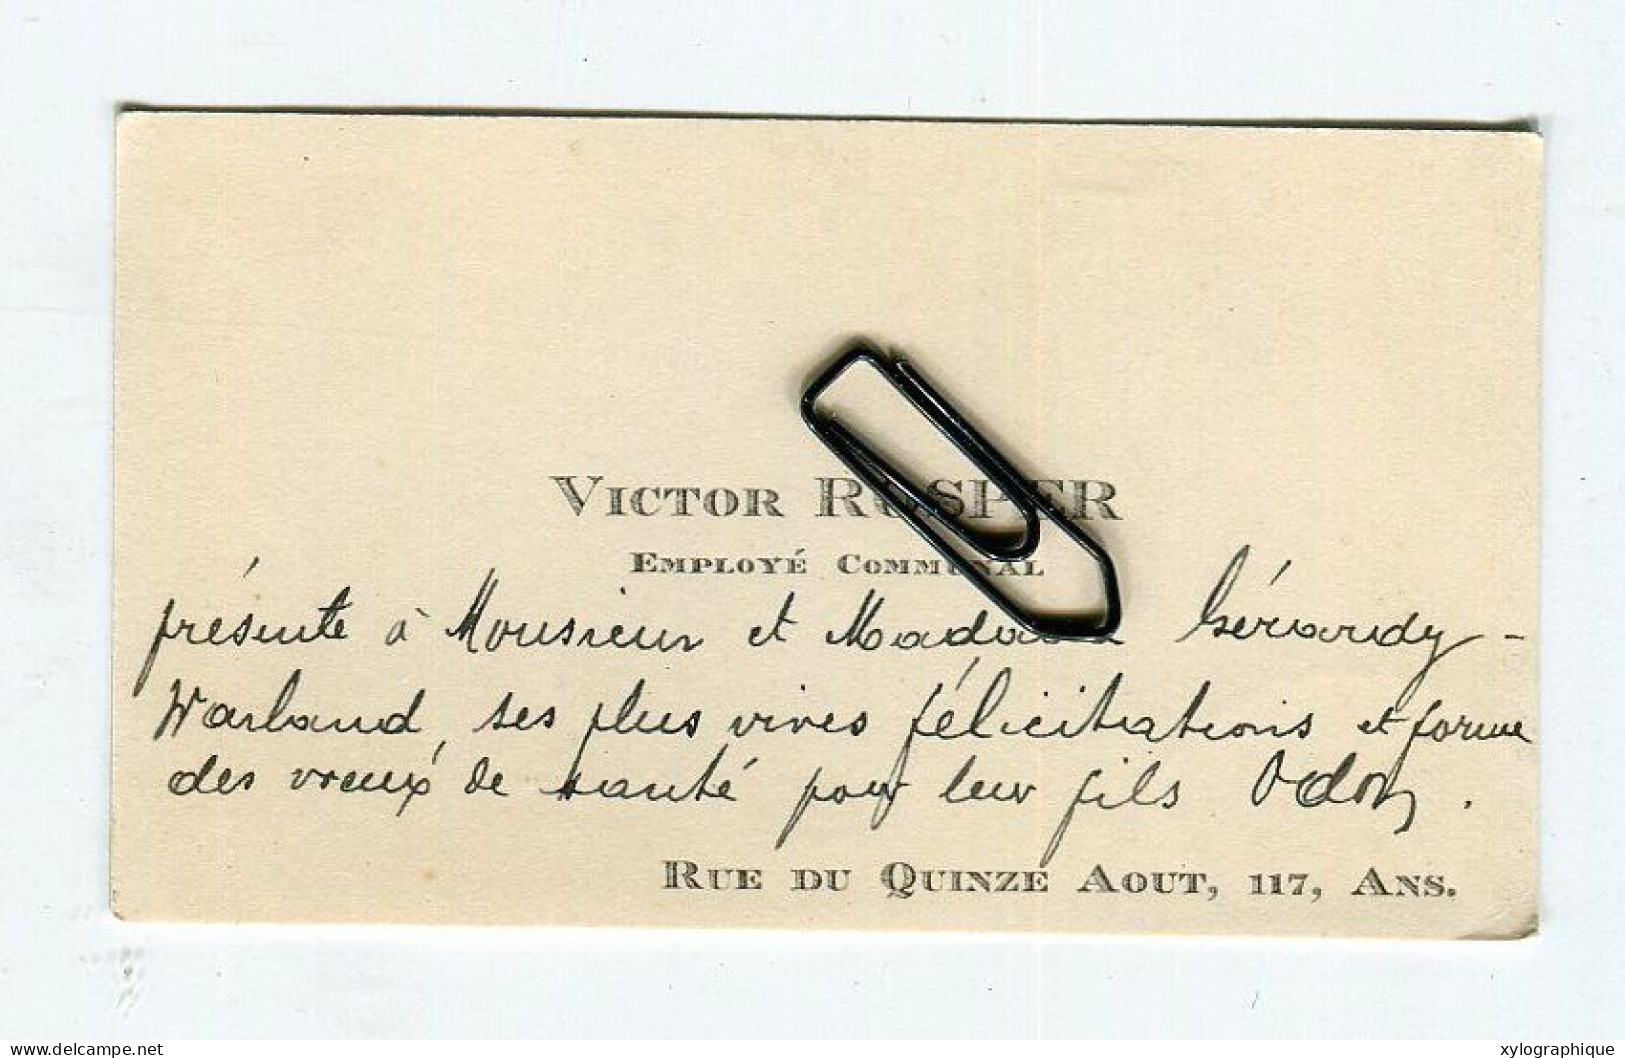 VICTOR ROSPER
EMPLOYÉ COMMUNAL
présente à Monsieur et Madame Gérardy -
Warland, ses plus vives félicitations et forme
des vœux de santé pour leur fils Odon.
RUE DU QUINZE AOUT, 117, ANS.
www.delcampe.net
xylographique